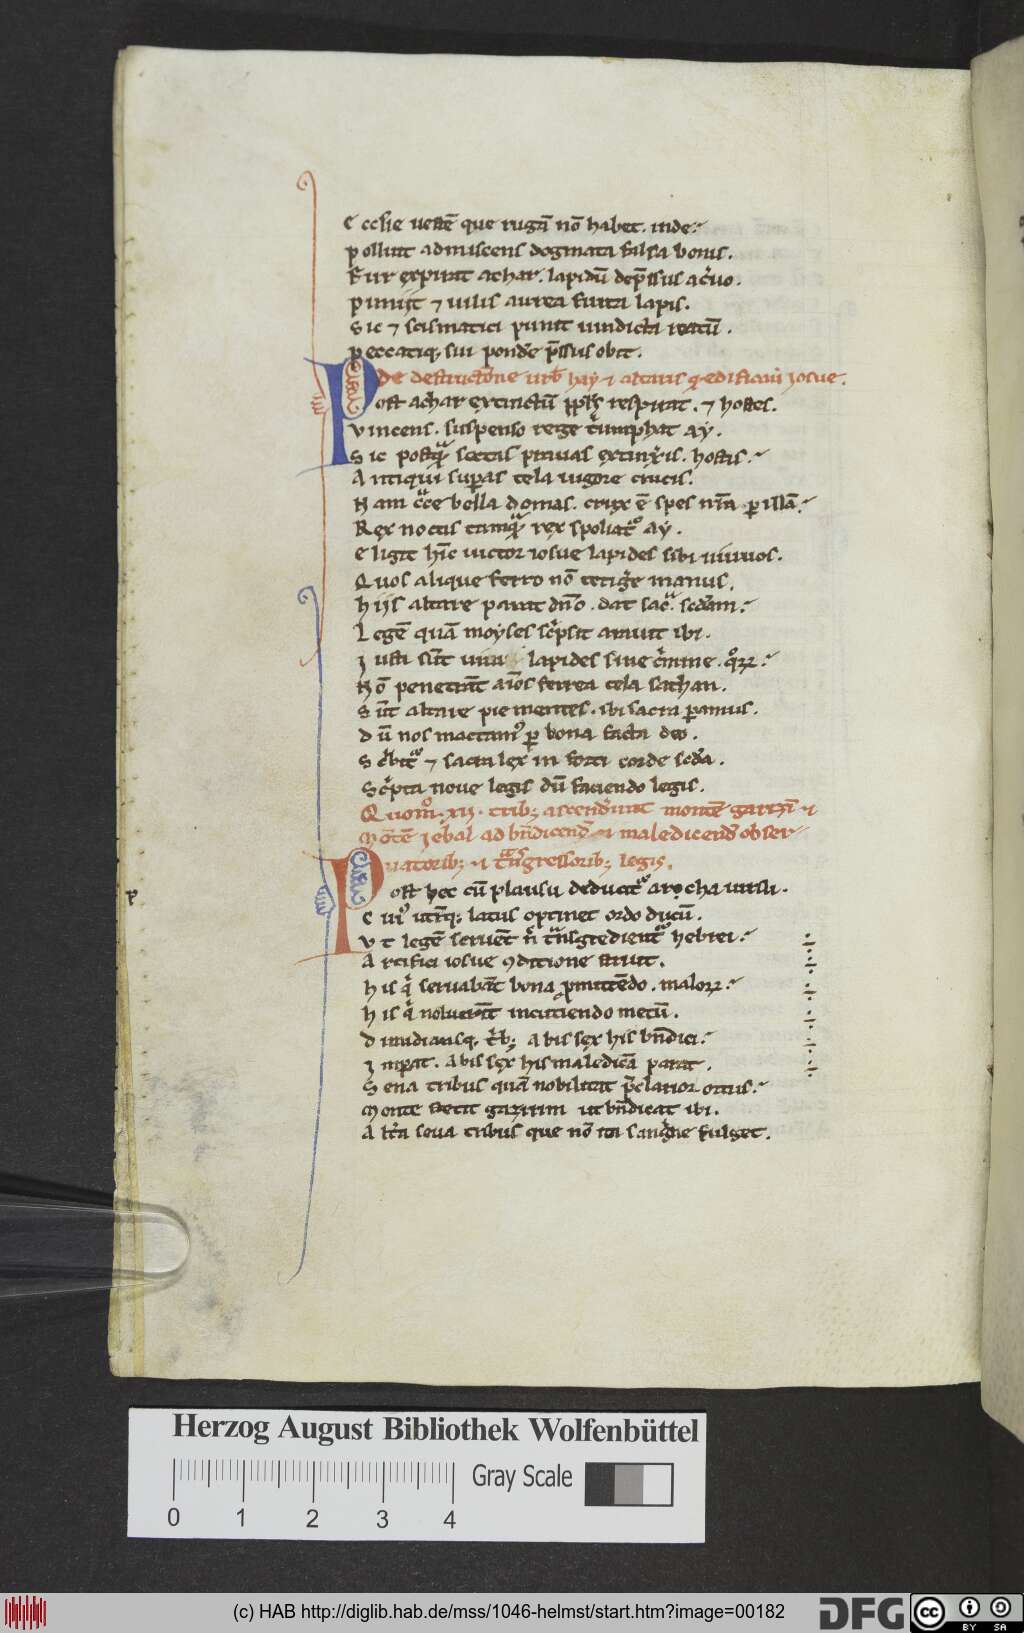 ecclīe uestē que rugā nō habet. inde:
polluit admiscens dogmata falsa bonis.
Fur expirat achar. lapidū dep̄ssus ac̄uo.
puniit ⁊ uilis aurea furta lapis.
Sic ⁊ scismatici punit uindicta reatū.
peccatiq; sui pond̄e p̄ssus obit.
de destructōne urb̄ hay ⁊ altaris q edificauit iosue.
Post achar extinctū ppl̄s respirat. ⁊ hostes.
vincens. suspenso rege t̄umphat ay.
Sic postq̄ sectas prauas extinx̄is. hostis:
Antiqui sup̄as tela uigore crucis.
Nam c̄ce bella domas. crux ē spes nr̄a p illā:
Rex noctis tamq̄ rex spoliat᷒ ay.
eligit hīc uictor iosue lapides sibi uiuos.
Quos alique ferro nō tetiḡe manus.
hiis altare parat dn̄o. dat sac̄. scd̄am:
Legē quā moyses sc̄psit arauit ibi.
Iusti sūt uiui lapides sine c̄mine. q̄ꝝ:
Nō penetrāt aīos ferrea tela sathan.
Sūt altare pie mentes. ibi sacra paramus.
dū nos mactam᷒ p bona facta deo.
Sc̄bit᷒ ⁊ sacra lex in forti corde scd̄a.
Sc̄pta noue legis dū faciendo legis.
Quom̊ .xii. trib; ascend̄unt montē garizī ⁊
Mōtē hebal ad bn̄dicend̄ ⁊ maledicend̄ obser
uatorib; ⁊ t̄nsgressorib; legis.
Post hec cū plausu deducit᷒ archa uirili.
Cui᷒ utr̄q; latus optinet ordo ducū.
Vt legē seruēt n̄ t̄nsgredient᷒ hebrei:
Artifici iosue ꝯditione struit.
his q̄ seruabāt bona promittēdo. maloꝝ:
his q̄ noluerīt incutiendo metū.
dimidiansq; t̄b; a bis sex his bn̄dici:
Imp̄at. a bis sex his maledicā parat.
Sena tribus quā nobilitat p̄clarior ortus:
Monte stetit garizim ut bn̄dicat ibi.
Alt̄a seua tribus que nō ita sangn̄e fulget.
Herzog August Bibliothek Wolfenbüttel
Gray Scale
0 1 2 3 4
(c) HAB http://diglib.hab.de/mss/1046-helmst/start.htm?image=00182
DFG
cc
BY SA